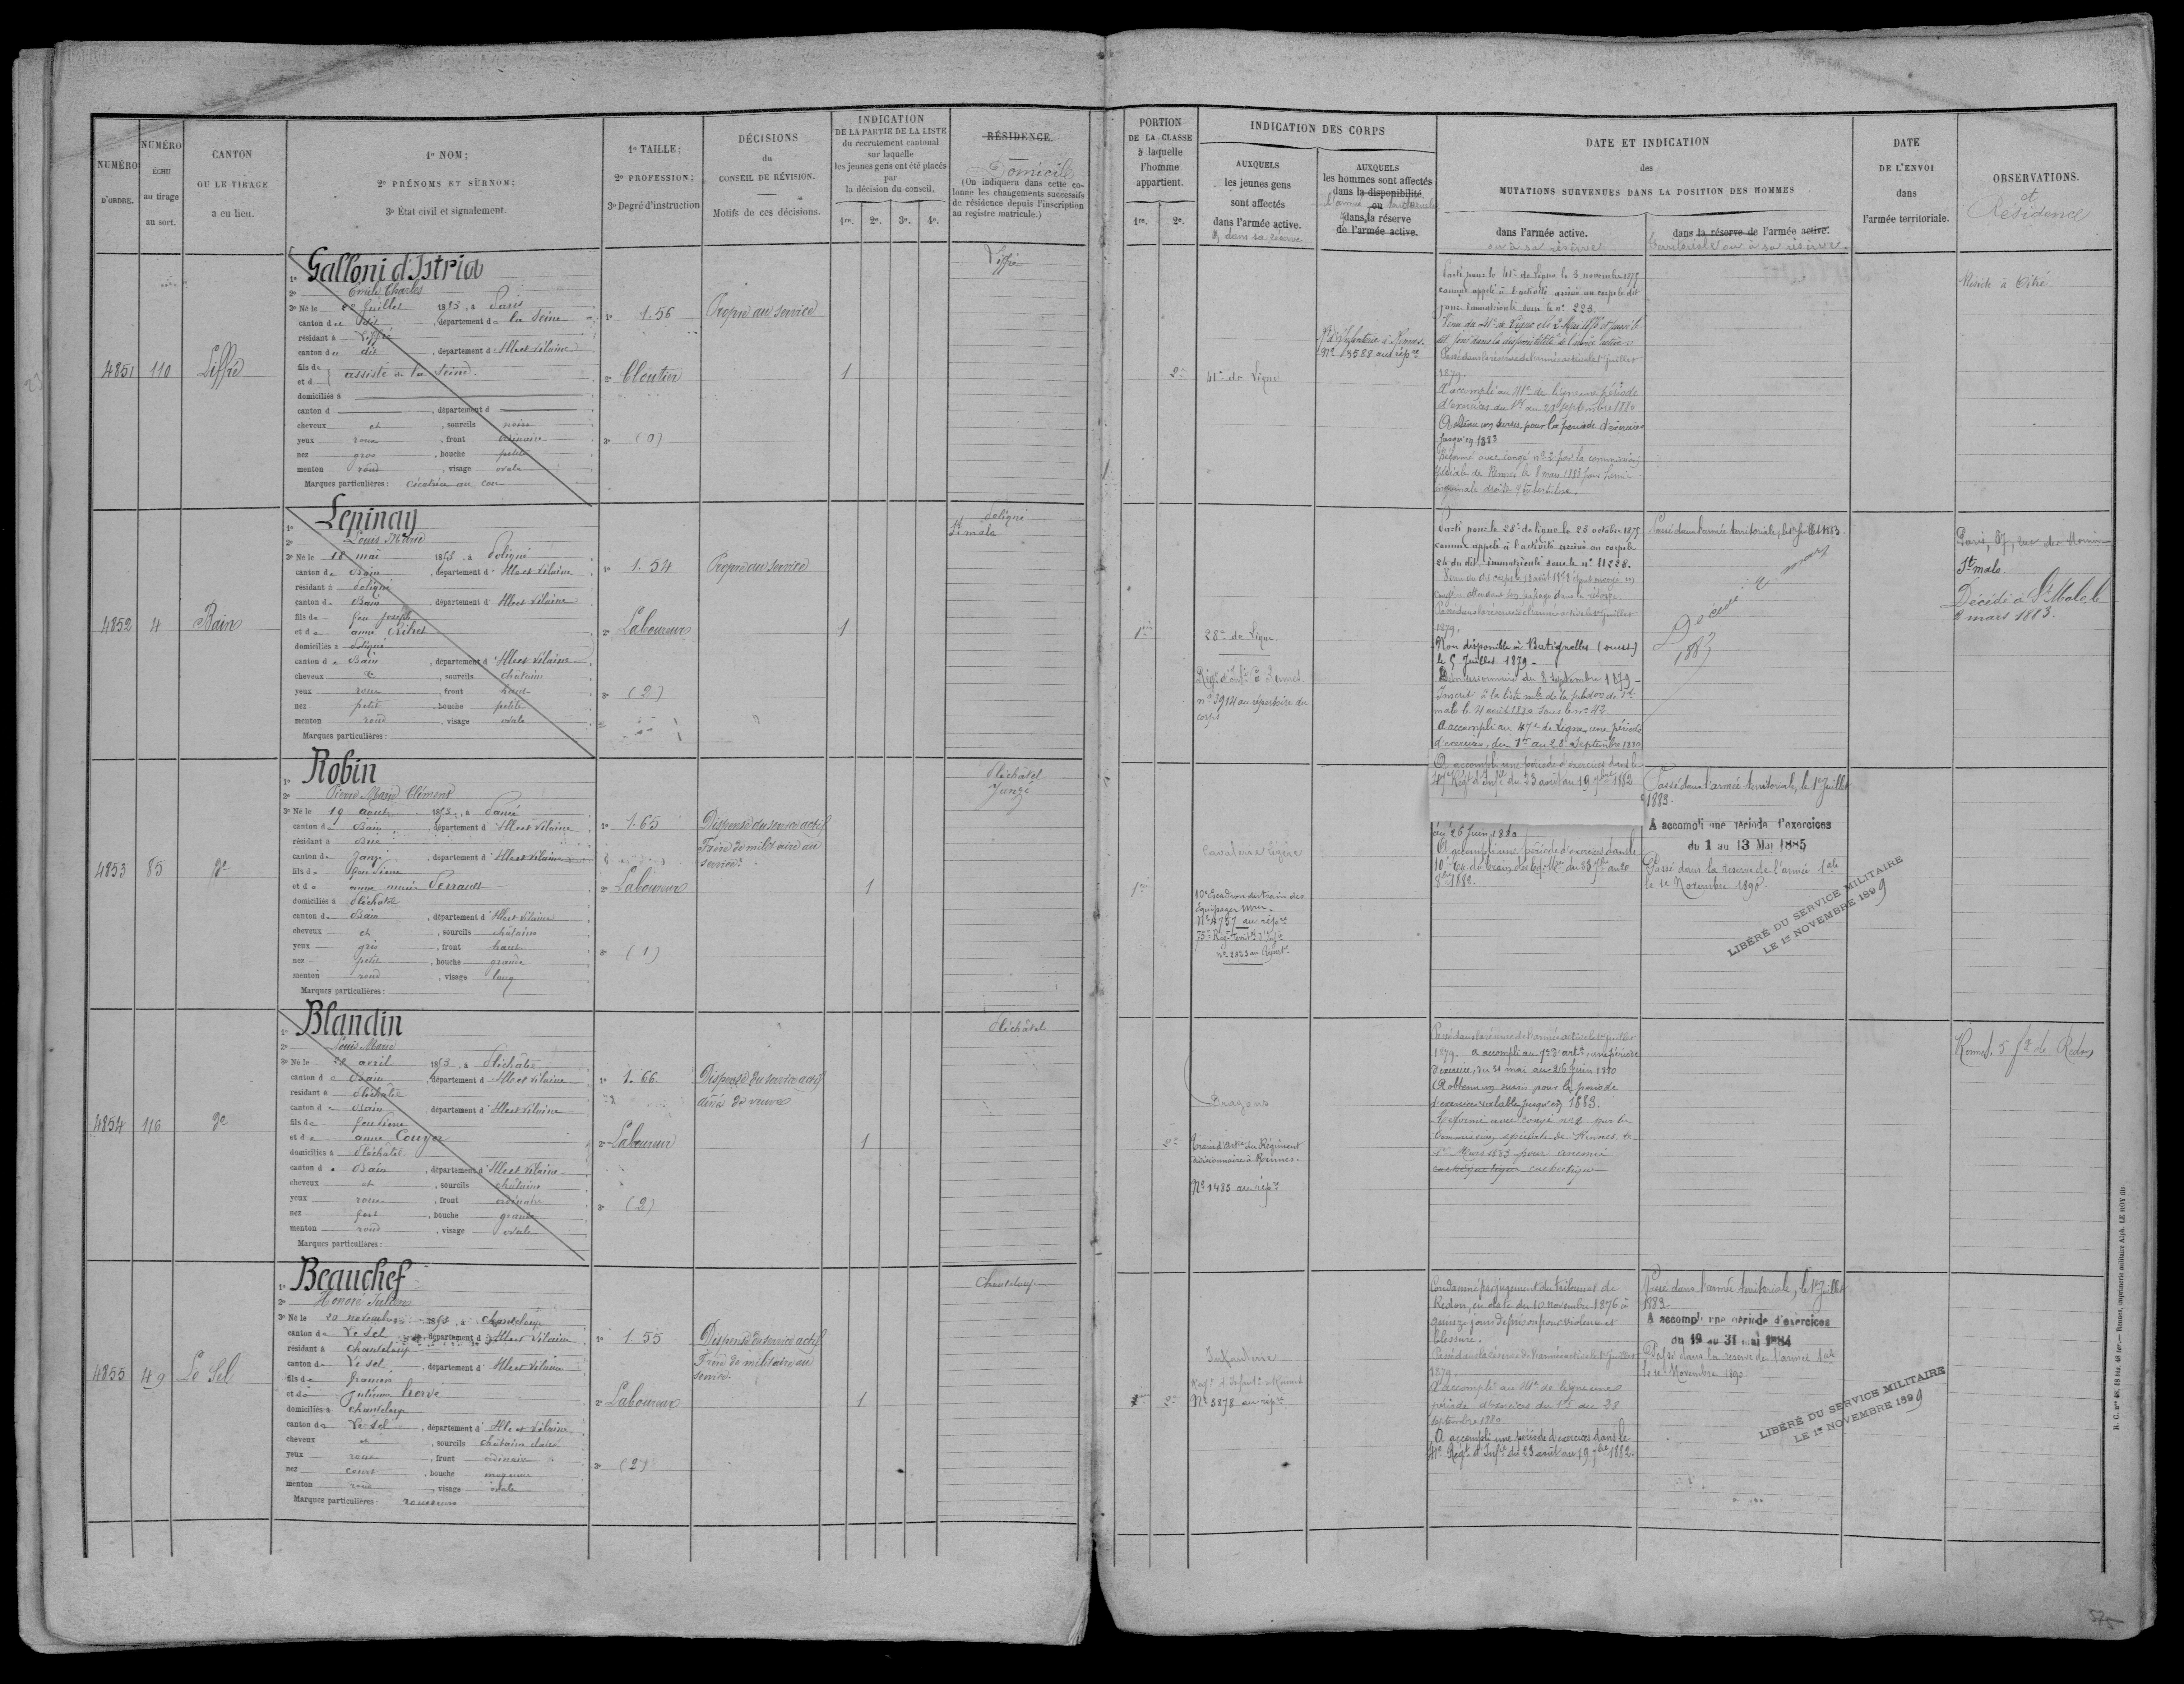 NUMÉRO D'ORDRE.
NUMÉRO ÉCHU au tirage au sort.
CANTON OU LE TIRAGE a eu lieu.
1º NOM;
2º PRÉNOMS ET SURNOM;
3º État civil et signalement.
1º TAILLE;
2º PROFESSION;
3º Degré d'instruction
DÉCISIONS du CONSEIL DE RÉVISION.
Motifs de ces décisions.
INDICATION DE LA PARTIE DE LA LISTE du recrutement cantonal sur laquelle les jeunes gens ont été placés par la décision du conseil.
1re. 2e. 3e. 4e.
RÉSIDENCE.
Domicile
(On indiquera dans cette colonne les changements successifs de résidence depuis l'inscription au registre matricule.)
PORTION DE LA CLASSE à laquelle l'homme appartient.
1re. 2e.
INDICATION DES CORPS
AUXQUELS les jeunes gens sont affectés dans l'armée active.
& dans sa réserve
AUXQUELS les hommes sont affectés dans la disponibilité ou dans la réserve de l'armée active.
DATE ET INDICATION des MUTATIONS SURVENUES DANS LA POSITION DES HOMMES
dans l'armée active.
ou à sa réserve
dans la réserve de l'armée active.
territoriale ou à sa réserve.
DATE DE L'ENVOI dans l'armée territoriale.
OBSERVATIONS.
et Résidence
4851
110
Liffré
Galloni d'Istria
Emile Charles
3º Né le juillet 1853, à Paris
canton de dit, département de la Seine
résidant à Liffré
canton de dit, département d'Ille et Vilaine
fils de
et d
assisté de la Seine.
domiciliés à
canton d , département d
cheveux et , sourcils noirs
yeux roux , front ordinaire
nez gros , bouche petite
menton rond , visage ovale
Marques particulières: cicatrice au cou
1º 1.56
2º Cloutier
3º (0)
Propre au service
1
Liffré
2e
41e de Ligne
Nº 13588 au répre
Parti pour le 41e de ligne le 3 novembre 1875
comme appelé à l'activité arrivé au corps le dit
jour immatriculé sous le nº 223.
dit jour dans la disponibilité de l'armée active
Passé dans la réserve de l'armée active le 1er juillet
1879.
A accompli au 41e de ligne une période
d'exercices du 1er au 28 septembre 1880
A obtenu un sursis pour la période d'exercices
jusqu'en 1883
Réformé avec congé nº 2 par la commission
spéciale de Rennes le 8 mars 1883 pour hernie
inguinale droite
Réside à Vitré
4852
4
Bain
Lepinay
Louis Marie
3º Né le 18 mai 1853, à Poligné
canton de Bain , département d'Ille et Vilaine
résidant à Poligné
canton de Bain , département d'Ille et Vilaine
fils de feu Joseph
et de anne
domiciliés à Poligné
canton de Bain , département d'Ille et Vilaine
cheveux & , sourcils châtains
yeux roux , front haut
nez petit , bouche petite
menton rond , visage ovale
Marques particulières:
1º 1.54
2º Laboureur
3º (2)
Propre au service
1
Poligné
St malo
1re
28e de Ligne
nº 3914 au répertoire du
corps
Parti pour le 28e de ligne le 23 octobre 1875
comme appelé à l'activité arrivé au corps le
24 du dit, immatriculé sous le nº 11228.
congé en attendant son passage dans la réserve
Passé dans la réserve de l'armée active le 1er juillet
1879.
Non disponible à Batignolles (ouest)
le 5 Juillet 1879.
Démissionnaire du 8 septembre 1879
malo le 21 août 1880 sous le nº 42
A accompli au 47e de Ligne, une période
d'exercices, du 1er au 28 Septembre 1880
Passé dans l'armée territoriale, le 1er juillet 1883.
Décédé 2 mars
1883
St malo
Décédé à St Malo le
2 mars 1883.
4853
85
do
Robin
Pierre Marie Clément
3º Né le 19 août 1853, à Pancé
canton de Bain , département d'Ille et Vilaine
résidant à
canton de Janzé , département d'Ille et Vilaine
fils de feu Pierre
et de anne marie Perrault
domiciliés à Pléchâtel
canton de Bain , département d'Ille et Vilaine
cheveux et , sourcils châtains
yeux gris , front haut
nez petit , bouche grande
menton rond , visage long
Marques particulières:
1º 1.65
2º Laboureur
3º (1)
Dispensé du service actif
Frère de militaire au
service.
1
Pléchâtel
Janzé
1re
Cavalerie légère
10e Escadron du train des
équipages
Nº 4757 au répre
A accompli une période d'exercices dans le
47e Régt d'Infie du 23 août au 19 7bre 1882
au 26 juin 1880
A accompli une période d'exercices dans le
8bre 1882.
Passé dans l'armée territoriale, le 1er Juillet
1883.
A accompli une période d'exercices
du 1 au 13 Mai 1885
Passé dans la réserve de l'armée 1ale
le 1e Novembre 1890
LIBÉRÉ DU SERVICE MILITAIRE
LE 1er NOVEMBRE 1899
4854
116
do
Blandin
Louis Marie
3º Né le 22 avril 1853, à Pléchâtel
canton de Bain , département d'Ille et Vilaine
résidant à Pléchâtel
canton de Bain , département d'Ille et Vilaine
fils de feu Pierre
et de anne Couyer
domiciliés à Pléchâtel
canton de Bain , département d'Ille et Vilaine
cheveux et , sourcils châtains
yeux roux , front ordinaire
nez fort , bouche grande
menton rond , visage ovale
Marques particulières:
1º 1.66
2º Laboureur
3º (2)
Dispensé du service actif
aîné de veuve
1
Pléchâtel
2e
Dragons
Train d'Artie du Régiment
divisionnaire à Rennes.
Nº 1483 au répre
Passé dans la réserve de l'armée active le 1er juillet
1879. A accompli au 7e d'artie une période
d'exercice, du 31 mai au 26 juin 1880
A obtenu un sursis pour la période
d'exercices valable jusqu'en 1883.
Réformé avec congé nº 2 par la
Commission spéciale de Rennes, le
1er Mars 1883 pour anémie
cachectique
Rennes. 5 f g de Redon
4855
49
Le Sel
Beauchef
Honoré Julien
3º Né le 20 novembre 1853, à Chanteloup
canton de Le Sel , département d'Ille et Vilaine
résidant à Chanteloup
canton de Le Sel , département d'Ille et Vilaine
fils de françois
et de julienne hervé
domiciliés à Chanteloup
canton de Le Sel , département d'Ille et Vilaine
cheveux et , sourcils châtain clair
yeux roux , front ordinaire
nez court , bouche moyenne
menton rond , visage ovale
Marques particulières: rousseurs
1º 1.55
2º Laboureur
3º (2)
Dispensé du service actif
Frère de militaire au
service.
1
Chanteloup
2e
Infanterie
Nº 3878 au répre
Condamné par jugement du tribunal de
Redon, en date du 10 novembre 1876 à
quinze jours de prison pour violence et
blessure.
Passé dans la réserve de l'armée active le 1er juillet
1879.
A accompli au 41e de ligne une
période d'exercices du 1er au 28
septembre 1880
A accompli une période d'exercices dans le
41e Régt d'Infie du 23 août au 19 7bre 1882.
Passé dans l'armée territoriale, le 1er Juillet
1883
A accompli une période d'exercices
du 19 au 31 mai 1884
Passé dans la réserve de l'armée 1ale
le 1e Novembre 1890.
LIBÉRÉ DU SERVICE MILITAIRE
LE 1er NOVEMBRE 1899